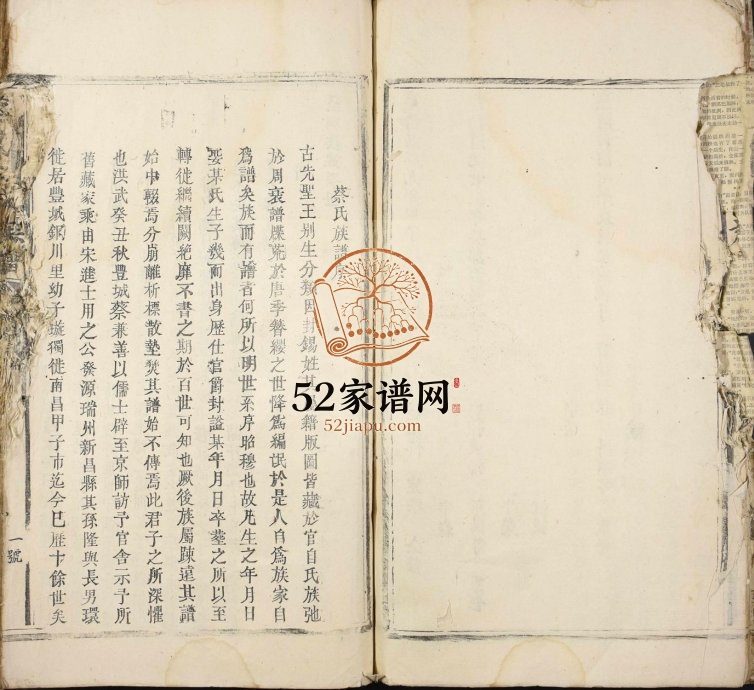 蔡氏族譜
古先聖王别生分類因封錫姓其 籍版圖皆藏於官自氏族弛
於周衰譜牒荒於唐季簪纓之世降爲編氓於是人自爲族家自
爲譜矣族而有譜者何所以明世系序昭穆也故凡生之年月日
娶某氏生子幾而出身歷仕官爵封謚某年月日卒塟之所以至
轉徙繼續闕絶靡不書之期於百世可知也厥後族屬踈遠其譜
始中輟焉分崩離析標散墊焚其譜始不傳焉此君子之所深懼
也洪武癸丑秋豐城蔡兼善以儒士辟至京師訪予官舍示予所
舊藏家乘由宋進士用之公發源瑞州新昌縣其孫隆與長男環
徙居豐城銅川里幼子璇獨徙南昌甲子市迄今已歷十餘世矣
一號
52家谱网
52jiapu.com